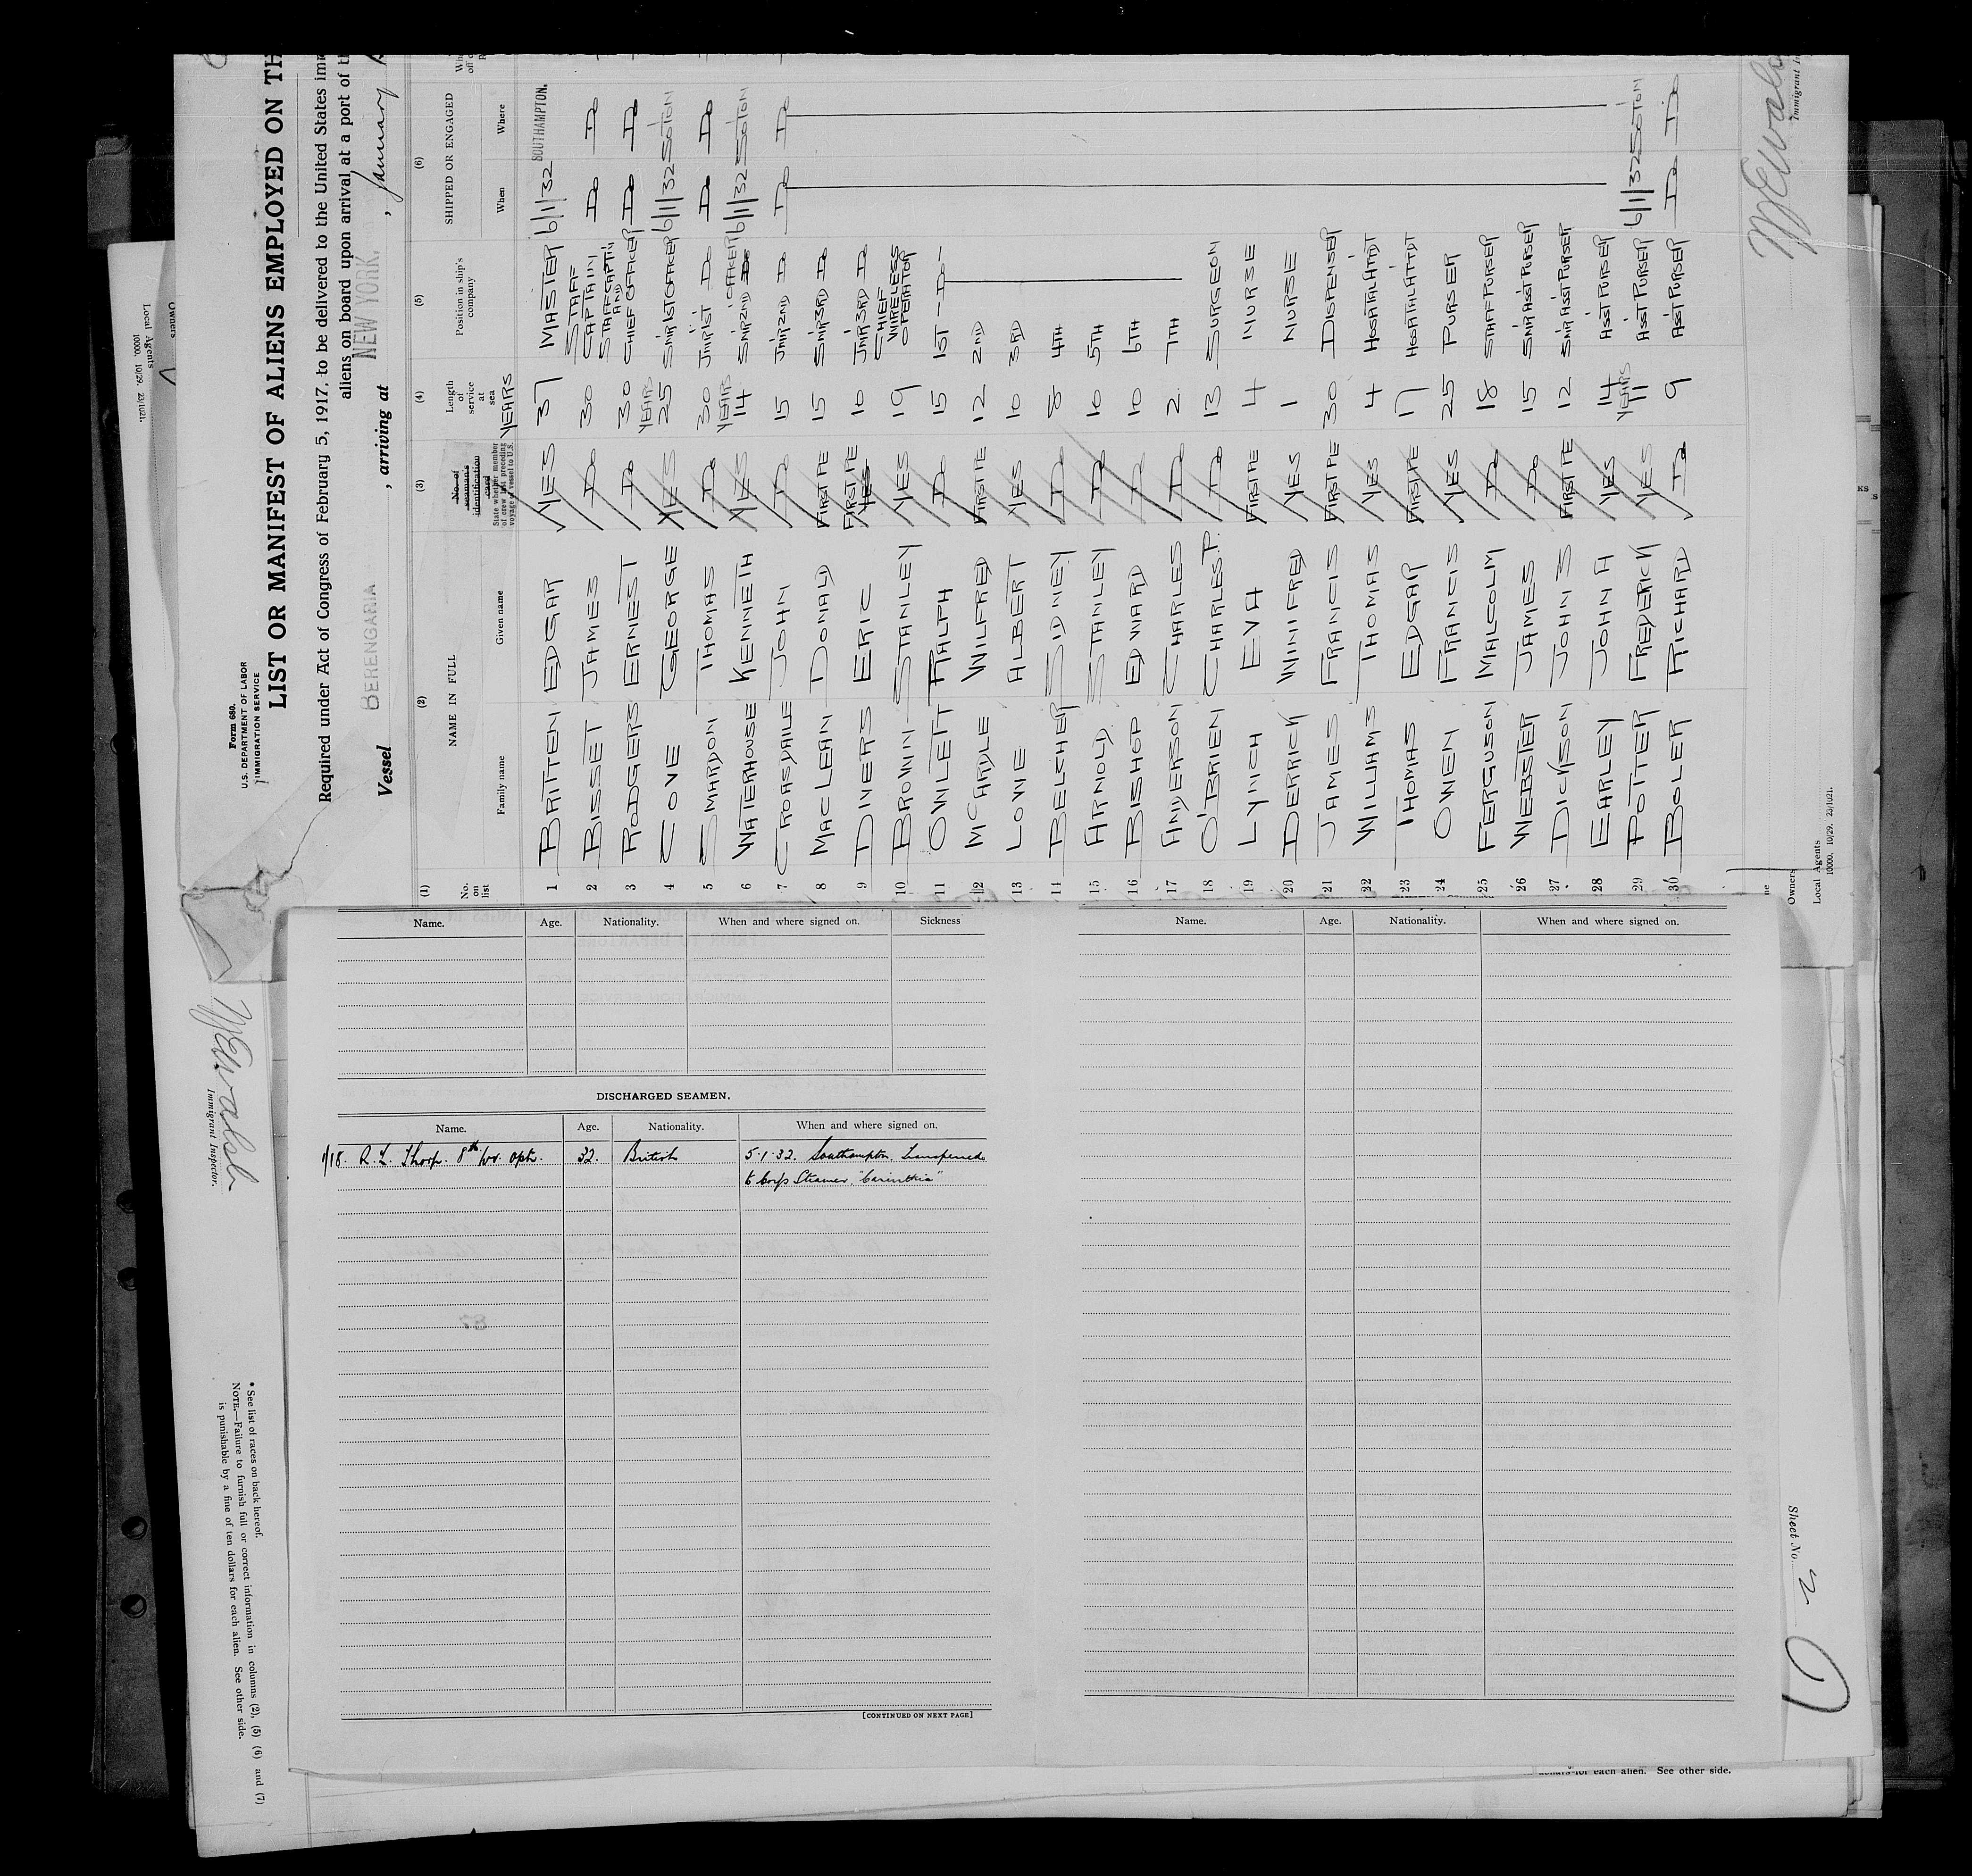 Form 680.
U.S. DEPARTMENT OF LABOR
IMMIGRATION SERVICE
LIST OR MANIFEST OF ALIENS EMPLOYED ON TH
Required under Act of Congress of February 5, 1917, to be delivered to the United States imm
aliens on board upon arrival at a port of th
Vessel BERENGARIA , arriving at NEW YORK. , January
(1) (2) (3) (4) (5) (6)
No. on list
NAME IN FULL
Family name Given name
No. of seaman's identification card
State whether member of crew last preceding voyage of vessel to U.S.
Length of service at sea
Position in ship's company
SHIPPED OR ENGAGED
When Where
YEARS
1 BRITTEN EDGAR YES 37 MASTER 6/1/32 SOUTHAMPTON.
2 BISSET JAMES DO 30 STAFF CAPTAIN DO DO
3 RODGERS ERNEST DO 30 STAFF CAPTN AND CHIEF OFFICER DO DO
4 COVE GEORGE YES YEARS 25 SNR 1ST OFFICER 6/1/32 SOTON
5 SMARDON THOMAS DO 30 JNR 1ST DO DO DO
6 WATERHOUSE KENNETH YES YEARS 14 SNR 2ND OFFICER 6/1/32 SOTON
7 CROASDAILE JOHN DO 15 JNR 2ND DO DO DO
8 MACLEAN DONALD FIRST TPE 15 SNR 3RD DO
9 DIVERS ERIC FIRST TPE YES 10 JNR 3RD DO
10 BROWN STANLEY YES 19 CHIEF WIRELESS OPERATOR
11 OWLETT RALPH DO 15 1ST DO
12 MCARDLE WILFRED FIRST TPE 12 2ND
13 LOWE ALBERT YES 10 3RD
14 BELCHER SIDNEY DO 8 4TH
15 ARNOLD STANLEY DO 10 5TH
16 BISHOP EDWARD DO 10 6TH
17 ANDERSON CHARLES DO 2 7TH
18 O'BRIEN CHARLES T.P. DO 13 SURGEON
19 LYNCH EVA FIRST TPE 4 NURSE
20 DERRICK WINIFRED YES 1 NURSE
21 JAMES FRANCIS FIRST TPE 30 DISPENSER
22 WILLIAMS THOMAS YES 4 HOSPITAL ATTDT
23 THOMAS EDGAR FIRST TPE 17 HOSPITAL ATTDT
24 OWEN FRANCIS YES 25 PURSER
25 FERGUSON MALCOLM DO 18 STAFF PURSER
26 WEBSTER JAMES DO 15 SNR ASST PURSER
27 DICKSON JOHN S FIRST TPE 12 SNR ASST PURSER
28 EARLEY JOHN A YES 14 ASST PURSER
29 POTTER FREDERICK YES YEARS 11 ASST PURSER 6/1/32 SOTON
30 BOLER RICHARD DO 9 ASST PURSER DO DO
Owners
Local Agents
10000. 10/29. 22/1021.
Immigrant In
Owners
Local Agents
10000. 10/29. 22/1021.
Name. Age. Nationality. When and where signed on. Sickness
DISCHARGED SEAMEN.
Name. Age. Nationality. When and where signed on.
1/18. R.L. Thorp. 8th wr. optr. 32. British 5.1.32. Southampton. Transferred
to Corps Steamer, "Carinthia"
[CONTINUED ON NEXT PAGE]
Name. Age. Nationality. When and where signed on.
W E Walsh
Immigrant Inspector.
* See list of races on back hereof.
NOTE.—Failure to furnish full or correct information in columns (2), (5) (6) and (7)
is punishable by a fine of ten dollars for each alien. See other side.
Sheet No. 2
for each alien. See other side.